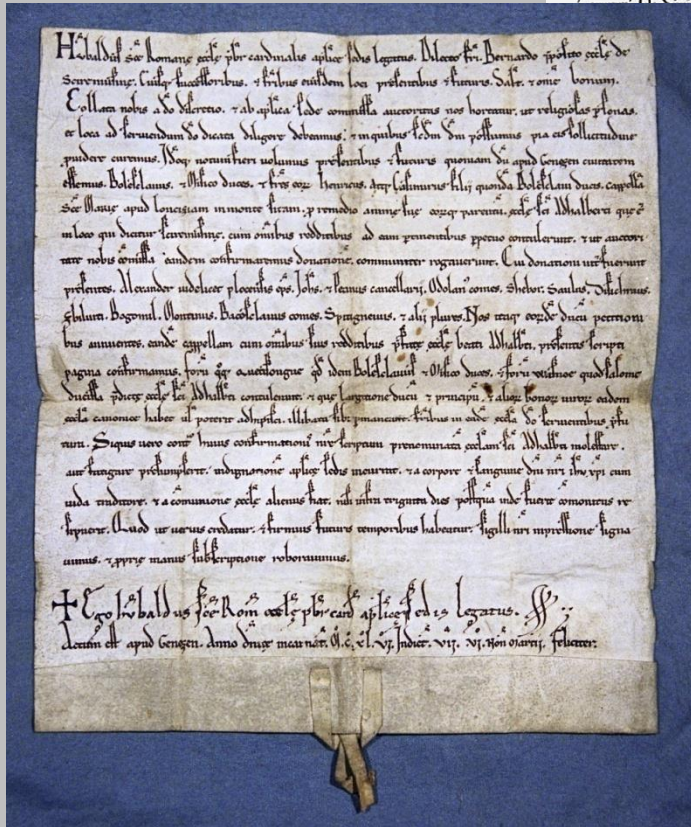 Hvbaldus sce Romane eccle pbr cardinalis aplice sedis legatus. Dilecto fri Bernardo pposito eccle de
eiusq; successoribus. & fribus eiusdem loci presentibus & futuris. Salt. & omne bonum.
Collata nobis a do discretio. & ab aplica sede commissa auctoritas nos hortatur. ut religiosas psonas.
et loca ad serviendum do dicata diligere debeamus. & inquibus scdm dm possumus pia eis sollicitudine
pvidere curemus. Idoq; notum fieri volumus presentibus & futuris quoniam du apud Gengen civitatem
essemus. Bolezlauus. & Misico duces. & frs eorz henricus. atq; Casimirus filii quonda Bolezlaui ducis. cappella
sce Marie apud loncisiam in monte sitam. p remedio anime sue eorzq; parentu. eccle sci Adhalberti que e
in loco qui dicitur cum omibus redditibus ad eam ptinentibus ppetuo contulerunt. & ut auctori
tate nobis comissa eandem confirmaremus donatione. communiter rogaverunt. Cui donationi fuerunt
presentes. Alexander videlicet plocensis eps. Johs. & Peanus cancellarij. Odolan comes. Saulus.
Bogomil. Monturnus. comes. Spitigneuus. & alij plures. Nos itaq; eorzde ducu petitioni
bus annuentes. eande cappellam cum omibus suis redditibus pfate eccle beati Adhalbti. presentis scripti
pagina confirmamus. foru qq; qd idem Bolezlauus & Misico duces. & foru quod salome
ducissa pdicte eccle sci Adhalbti contulerunt. & que largitione ducu & principu. & alior bonor viror eadem
eccla canonice habet ul poterit adhipisci. illibata sibi pmaneant. fribus in eade eccla do servientibus pfu
tura. Siquis vero contra huius confirmationis nre scriptum prenominata ecclam sci Adhalbti molestare.
aut fatigare presumpserit. indignatione aplice sedis incurrat. & a corpore & sanguine dni nri ihu xpi cum
iuda traditore. & a comunione eccle alienus fiat. nisi infra triginta dies postqua inde fuerit comonitus re
sipuerit. Quod ut verius credatur. & firmius futuris temporibus habeatur. sigilli nri inpressione signa
vimus. & pprie manus subscriptione roboravimus.
+ Ego hvbaldus sce Rom eccle pbr card aplice sedis legatus. SS
Actum est apud Gengen. Anno dnice incarnat. M. c. xl. vi. Indict. vii. vi. Non Martii. feliciter.